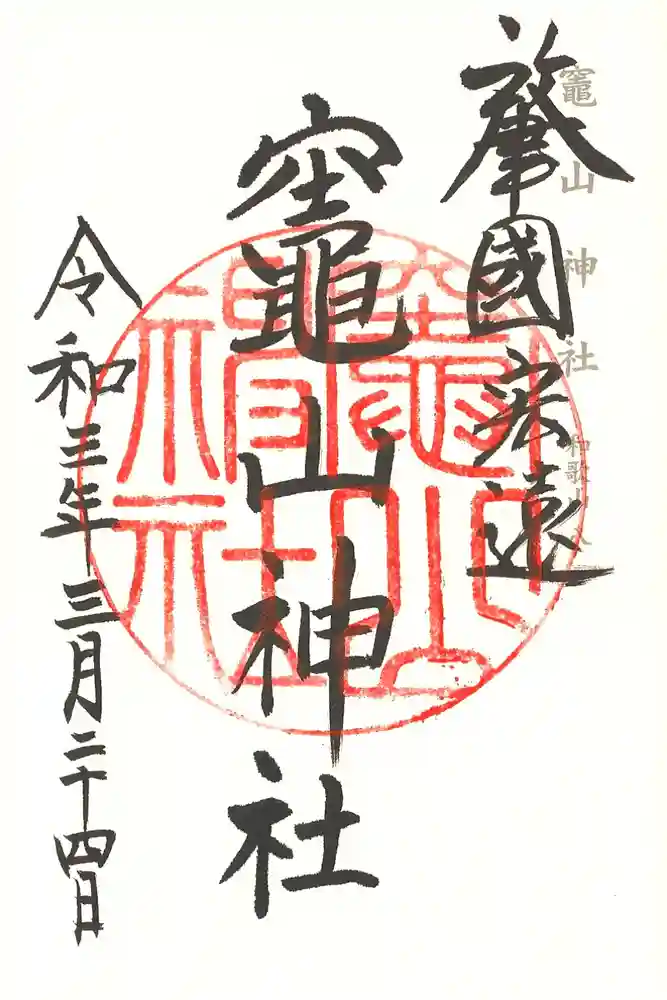 竈山神社
肇國宏遠
竈山神社
竈山
神社
令和三年三月二十四日